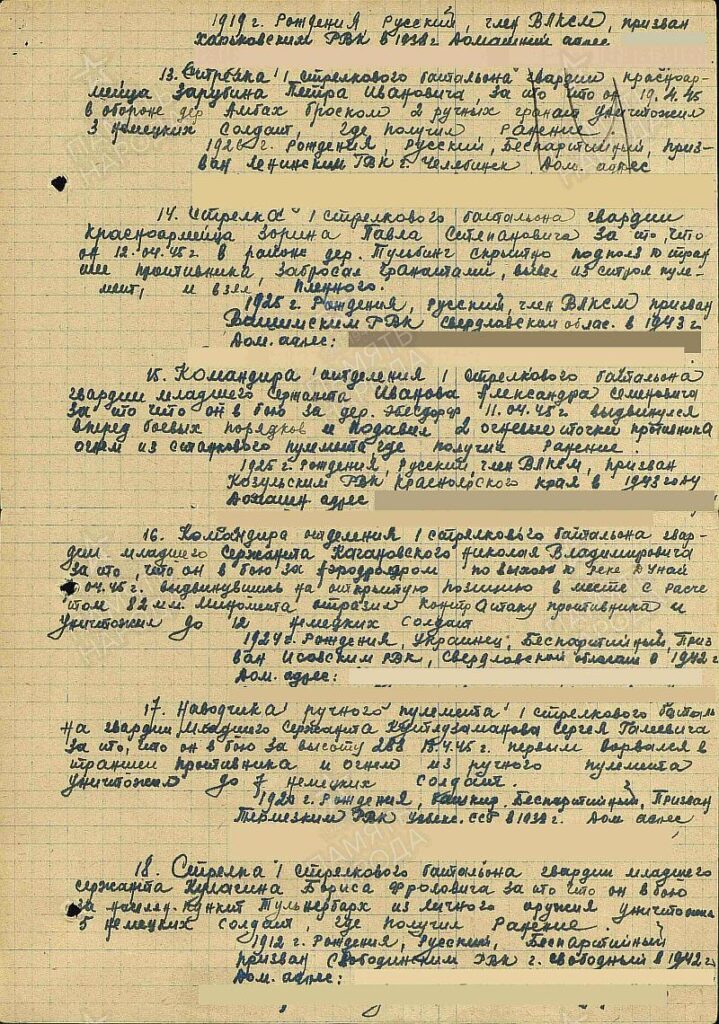 1919 г. Рождения Русский, член ВЛКСМ, призван
Харьковским РВК в 1938 г Домашний адрес
13. Стрелка 1 стрелкового батальона гвардии красноар-
мейца Зарубина Петра Ивановича, за то что он 19.4.45
в обороне дер Амбах броском 2 ручных гранат уничтожил
3 немецких солдат, где получил Ранение.
1926 г. Рождения, Русский, Беспартийный, приз-
ван Ленинским РВК г. Челябинск Дом. адрес
14. Стрелка 1 стрелкового батальона гвардии
Красноармейца Зорина Павла Степановича за то, что
он 12.04.45 г в районе дер. Тульбинг скрытно подполз к тран
шее противника, забросал гранатами, вывел из строя пуле-
мет, и взял пленного.
1925 г. Рождения, Русский, член ВЛКСМ призван
РВК Свердловской облас. в 1943 г
Дом. адрес:
15. Командира отделения 1 стрелкового батальона
гвардии младшего сержанта Иванова Александра Семеновича
за то что он в бою за дер. 11.04.45 г. выдвинулся
вперед боевых порядков и подавил 2 огневые точки противника
огнем из станкового пулемета, где получил Ранение.
1925 г. Рождения, Русский, член ВЛКСМ, призван
Козульским РВК Красноярского края в 1943 году
Домашн адрес
16. Командира отделения 1 стрелкового батальона гвар-
дии младшего Сержанта Кагановского Николая Владимировича
за то, что он в бою за аэродром по выходу к реке Дунай
04.45 г. выдвинувшись на открытую позицию в месте с расче
том 82 мм. миномета отразил контратаку противника и
уничтожил до 12 немецких солдат
1924 г. Рождения, Украинец, Беспартийный, Приз
ван Исовским РВК, Свердловской области в 1942 г
Дом. адрес:
17. Наводчика ручного пулемета 1 стрелкового баталь
на гвардии Младшего Сержанта Сергея Галеевича
за то, что он в бою за высоту 288 4.45 г. первым ворвался в
траншеи противника и огнем из ручного пулемета
уничтожил до 7 немецких солдат.
1920 г. Рождения, Башкир, Беспартийный, Призван
Термезким РВК Узбекс. ССР в 1939 г. Дом адрес
18. Стрелка 1 стрелкового батальона гвардии младшего
сержанта Кулагина Бориса Фроловича за то что он в бою
за населен. пункт Тульнербах из личного оружия уничтожил
5 немецких солдат, где получил Ранение.
1912 г. Рождения, Русский, Беспартийный
призван Свободинским РВК г. Свободный в 1942 г
Дом. адрес: